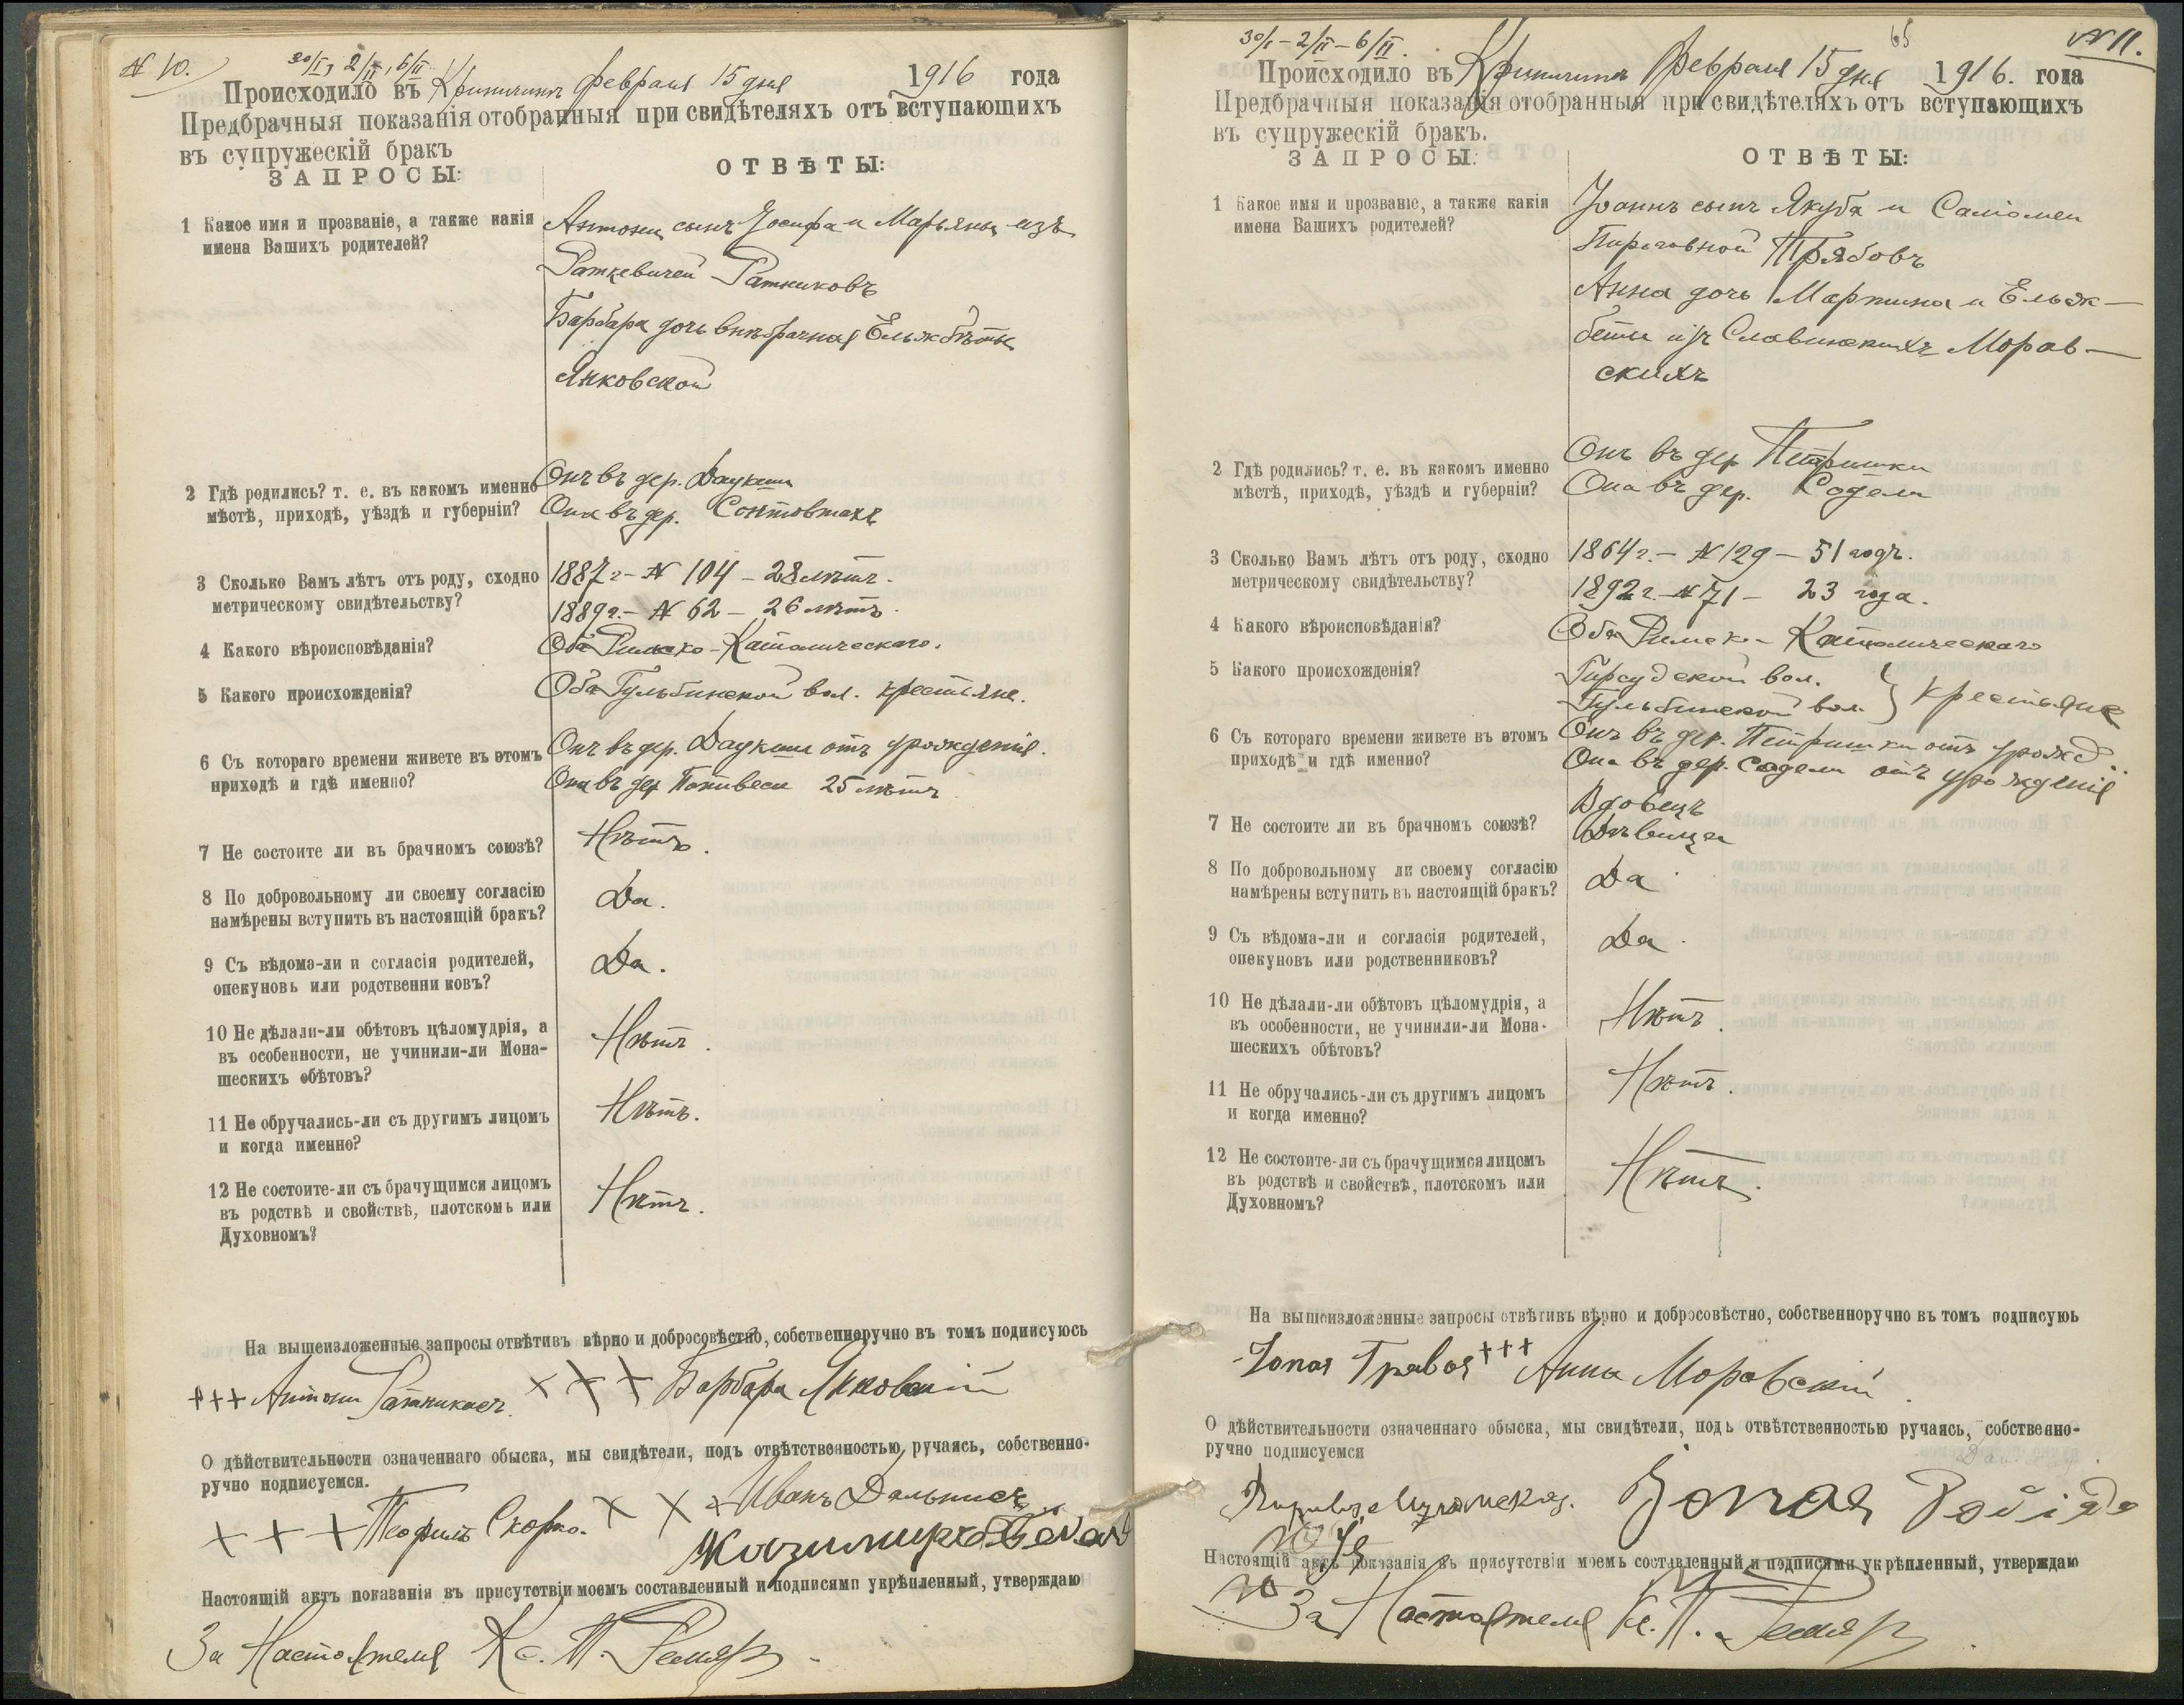 N 10.
30/I, 2/II, 6/II
Происходило въ февраля 15 дня 1916 года
Предбрачныя показанія отобранныя при свидѣтеляхъ отъ вступающихъ
въ супружескій бракъ
ЗАПРОСЫ: ОТВѢТЫ:
1 Какое имя и прозваніе, а также какія
имена Вашихъ родителей?
Антоній сынъ Іосифа и Марьяны изъ
Раткевичей Ратниковъ
Барбара дочь внѣбрачная Ельжбѣты
Янковской
2 Гдѣ родились? т. е. въ какомъ именно
мѣстѣ, приходѣ, уѣздѣ и губерніи?
Онъ въ дер. Даукши
Она въ дер.
3 Сколько Вамъ лѣтъ отъ роду, сходно
метрическому свидѣтельству?
1887 г. - N 104 - 28 лѣтъ.
1889 г. - N 62 - 26 лѣтъ.
4 Какого вѣроисповѣданія?
Оба Римско-Католическаго.
5 Какого происхожденія?
Оба Гульбинской вол. крестьяне.
6 Съ котораго времени живете въ этомъ
приходѣ и гдѣ именно?
Онъ въ дер. Даукши отъ урожденія.
Она въ дер. 25 лѣтъ
7 Не состоите ли въ брачномъ союзѣ?
Нѣтъ.
8 По добровольному ли своему согласію
намѣрены вступить въ настоящій бракъ?
Да.
9 Съ вѣдома-ли и согласія родителей,
опекуновъ или родственни ковъ?
Да.
10 Не дѣлали-ли обѣтовъ цѣломудрія, а
въ особенности, не учинили-ли Мона-
шескихъ обѣтовъ?
Нѣтъ.
11 Не обручались-ли съ другимъ лицомъ
и когда именно?
Нѣтъ.
12 Не состоите-ли съ брачущимся лицомъ
въ родствѣ и свойствѣ, плотскомъ или
Духовномъ?
Нѣтъ.
На вышеизложенные запросы отвѣтивъ вѣрно и добросовѣстно, собственноручно въ томъ подписуюсь
+++ Антони Ратникасъ. +++ Барбара Янковскій
О дѣйствительности означеннаго обыска, мы свидѣтели, подъ отвѣтственностью, ручаясь, собственно-
ручно подписуемся.
+++ Теофилъ +++ Иванъ
Настоящій актъ показанія въ присутствіи моемъ составленный и подписями укрѣпленный, утверждаю
За Настоятеля Кс. П.
65
N 11.
30/I - 2/II - 6/II.
Происходило въ февраля 15 дня 1916. года
Предбрачныя показанія отобранныя при свидѣтеляхъ отъ вступающихъ
въ супружескій бракъ.
ЗАПРОСЫ: ОТВѢТЫ:
1 Какое имя и прозваніе, а также какія
имена Вашихъ родителей?
Іоаннъ сынъ Якуба и Саломеи
Анна дочь Мартина и Ельж-
беты изъ Славинскихъ Морав-
скихъ
2 Гдѣ родились? т. е. въ какомъ именно
мѣстѣ, приходѣ, уѣздѣ и губерніи?
Онъ въ дер. Петришки
Она въ дер. Содели
3 Сколько Вамъ лѣтъ отъ роду, сходно
метрическому свидѣтельству?
1864 г. - N 129 - 51 годъ.
1892 г. - N 71 - 23 года.
4 Какого вѣроисповѣданія?
Оба Римско-Католическаго
5 Какого происхожденія?
Гирсудской вол. } крестьяне
Гульбинской вол.
6 Съ котораго времени живете въ этомъ
приходѣ и гдѣ именно?
Онъ въ дер. Петришки отъ урожд.
Она въ дер. Содели отъ урожденія
7 Не состоите ли въ брачномъ союзѣ?
Вдовецъ
Дѣвица
8 По добровольному ли своему согласію
намѣрены вступить въ настоящій бракъ?
Да
9 Съ вѣдома-ли и согласія родителей,
опекуновъ или родственниковъ?
Да.
10 Не дѣлали-ли обѣтовъ цѣломудрія, а
въ особенности, не учинили-ли Мона-
шескихъ обѣтовъ?
Нѣтъ.
11 Не обручались-ли съ другимъ лицомъ
и когда именно?
Нѣтъ.
12 Не состоите-ли съ брачущимся лицомъ
въ родствѣ и свойствѣ, плотскомъ или
Духовномъ?
Нѣтъ.
На вышеизложенные запросы отвѣтивъ вѣрно и добросовѣстно, собственноручно въ томъ подписуюь
+++ Анна Моравскій
О дѣйствительности означеннаго обыска, мы свидѣтели, подъ отвѣтственностью ручаясь, собственно-
ручно подписуемся
Настоящій актъ показанія въ присутствіи моемъ составленный и подписями укрѣпленный, утверждаю
За Настоятеля Кс. П.